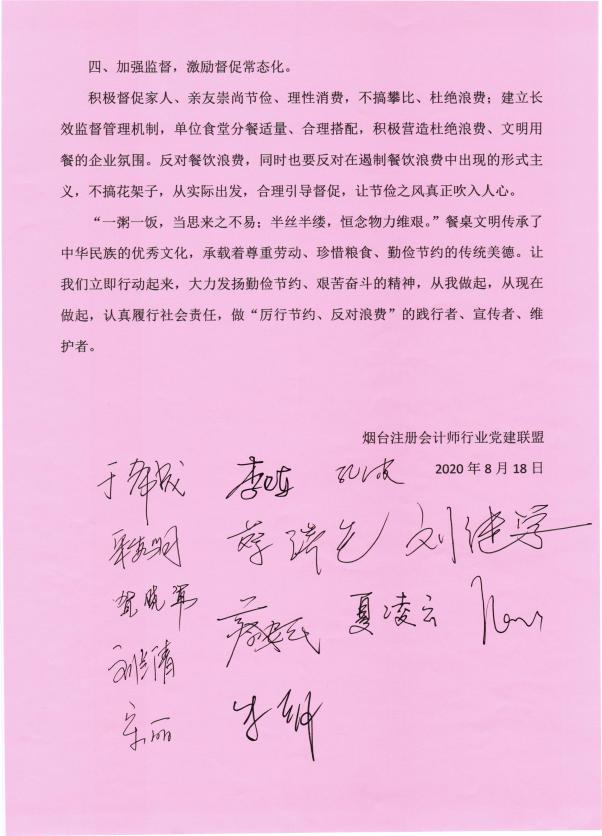 四、加强监督，激励督促常态化。
积极督促家人、亲友崇尚节俭、理性消费，不搞攀比、杜绝浪费；建立长
效监督管理机制，单位食堂分餐适量、合理搭配，积极营造杜绝浪费、文明用
餐的企业氛围。反对餐饮浪费，同时也要反对在遏制餐饮浪费中出现的形式主
义，不搞花架子，从实际出发，合理引导督促，让节俭之风真正吹入人心。
“一粥一饭，当思来之不易；半丝半缕，恒念物力维艰。”餐桌文明传承了
中华民族的优秀文化，承载着尊重劳动、珍惜粮食、勤俭节约的传统美德。让
我们立即行动起来，大力发扬勤俭节约、艰苦奋斗的精神，从我做起，从现在
做起，认真履行社会责任，做“厉行节约、反对浪费”的践行者、宣传者、维
护者。
烟台注册会计师行业党建联盟
2020 年 8 月 18 日
孔波
刘继学
贺晓军
夏凌云
宋丽